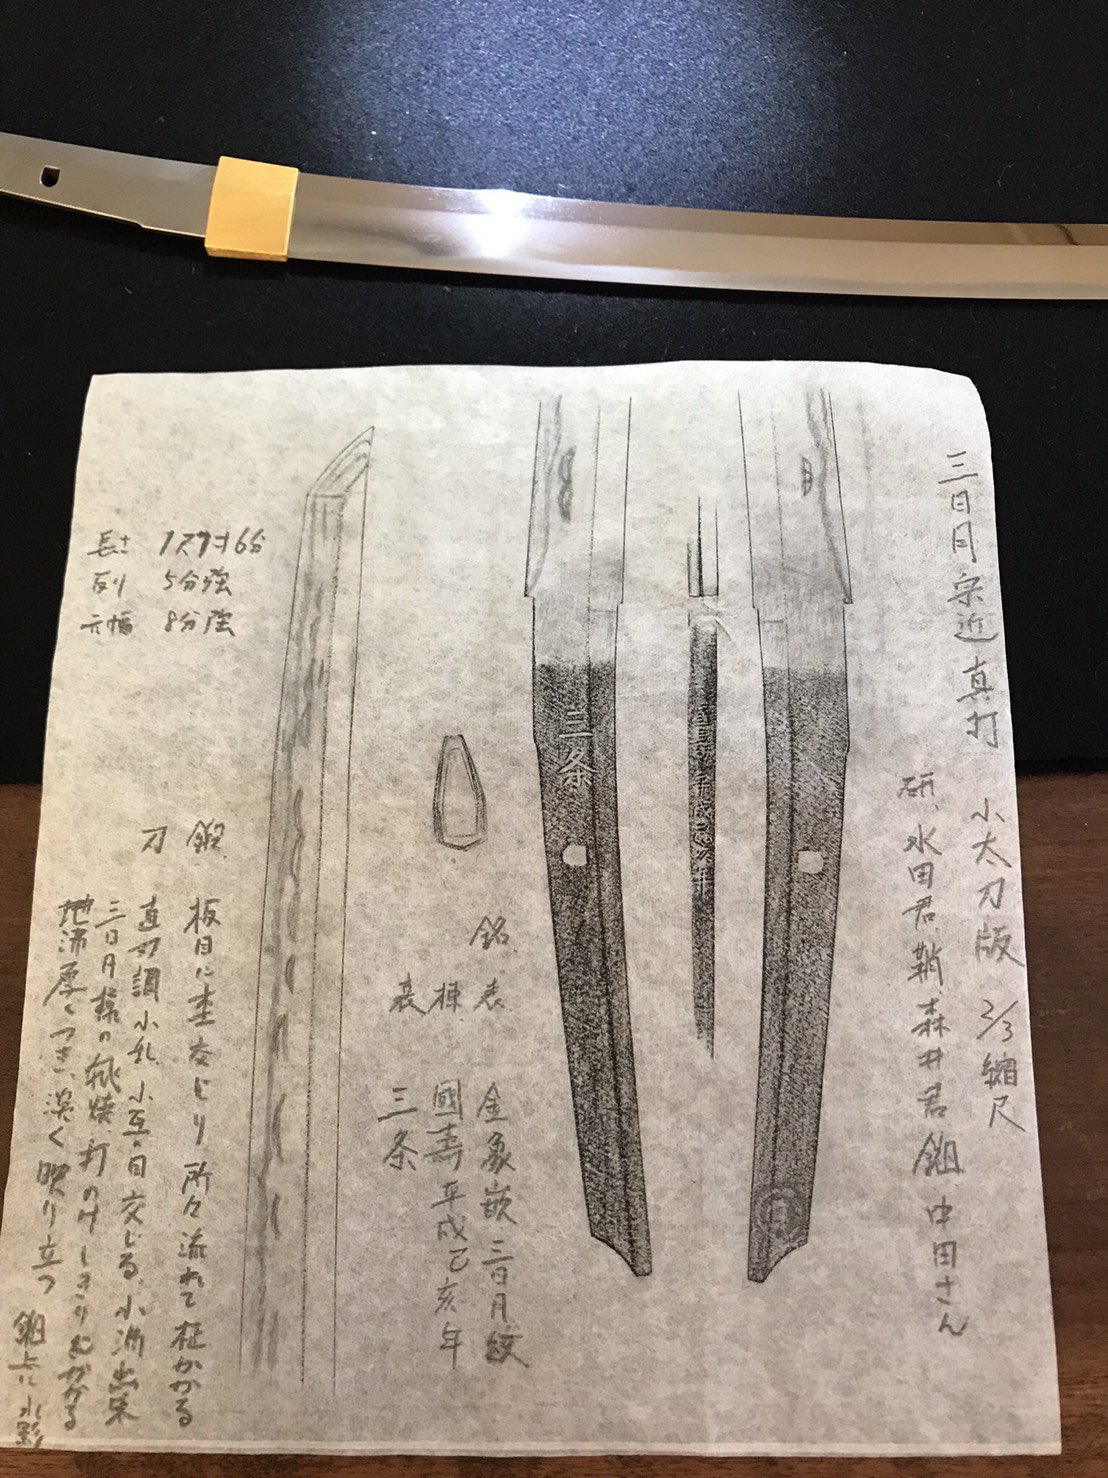 三日月宗近 真打 小太刀版 2/3縮尺
研、水田君、鞘森井君 鎺 中田さん
三条
長サ 1尺7寸6分
反リ 5分強
元幅 8分強
銘 表 金象嵌 三日月紋
棟 國壽 平成己亥年
裏 三条
鍛 板目に杢交じり 所々流れて柾かかる
刃 直刃調 小乱 小互の目交じる、小沸出来
三日月様の飛焼 打のけしきりにかかる
地沸厚くつき、淡く映り立つ 鎺上に水影